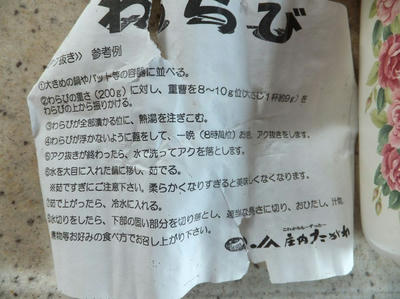 わらび
ク抜き》 参考例
①大きめの鍋やバット等の容器に並べる。
②わらびの重さ(200g)に対し、重曹を8～10g位(大さじ1杯約9g)を
わらびの上から振りかける。
③わらびが全部漬かる位に、熱湯を注ぎこむ。
④わらびが浮かないように蓋をして、一晩(8時間位)おき、アク抜きをします。
⑤アク抜きが終わったら、水で洗ってアクを落とします。
⑥水を大目に入れた鍋に移し、茹でる。
※茹ですぎにご注意下さい。柔らかくなりすぎると美味しくなくなります。
茹で上がったら、冷水に入れる。
水切りをしたら、下部の固い部分を切り落とし、適当な長さに切り、おひたし、汁物、
煮物等お好みの食べ方でお召し上がり下さい。
JA 庄内たがわ